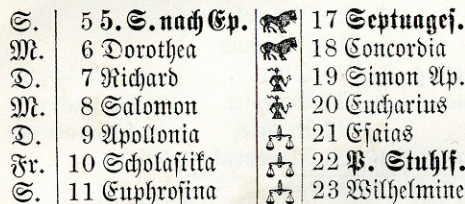 S. 5 5. S. nach Ep. 17 Septuages.
M. 6 Dorothea 18 Concordia
D. 7 Richard 19 Simon Ap.
M. 8 Salomon 20 Eucharius
D. 9 Apollonia 21 Esaias
Fr. 10 Scholastika 22 P. Stuhlf.
S. 11 Euphrosina 23 Wilhelmine